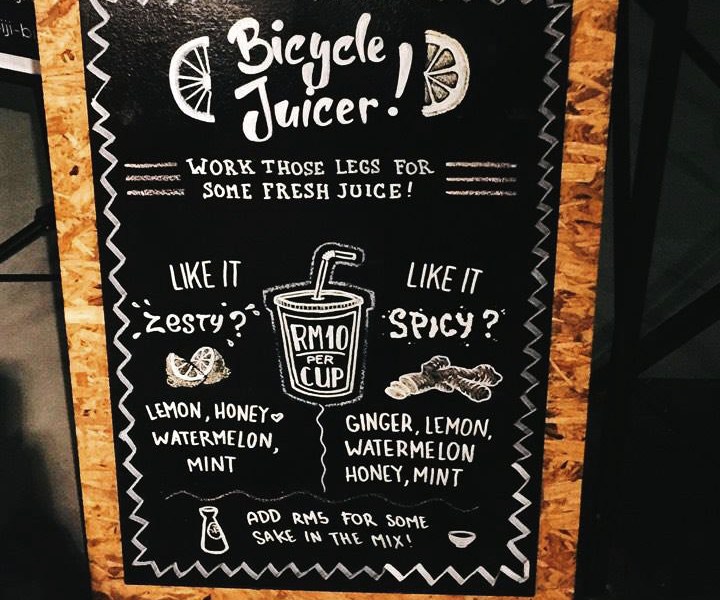 Bicycle
Juicer!
WORK THOSE LEGS FOR
SOME FRESH JUICE!
LIKE IT
ZESTY?
LEMON, HONEY
WATERMELON,
MINT
RM10
PER
CUP
LIKE IT
SPICY?
GINGER, LEMON,
WATERMELON
HONEY, MINT
ADD RM5 FOR SOME
SAKE IN THE MIX!